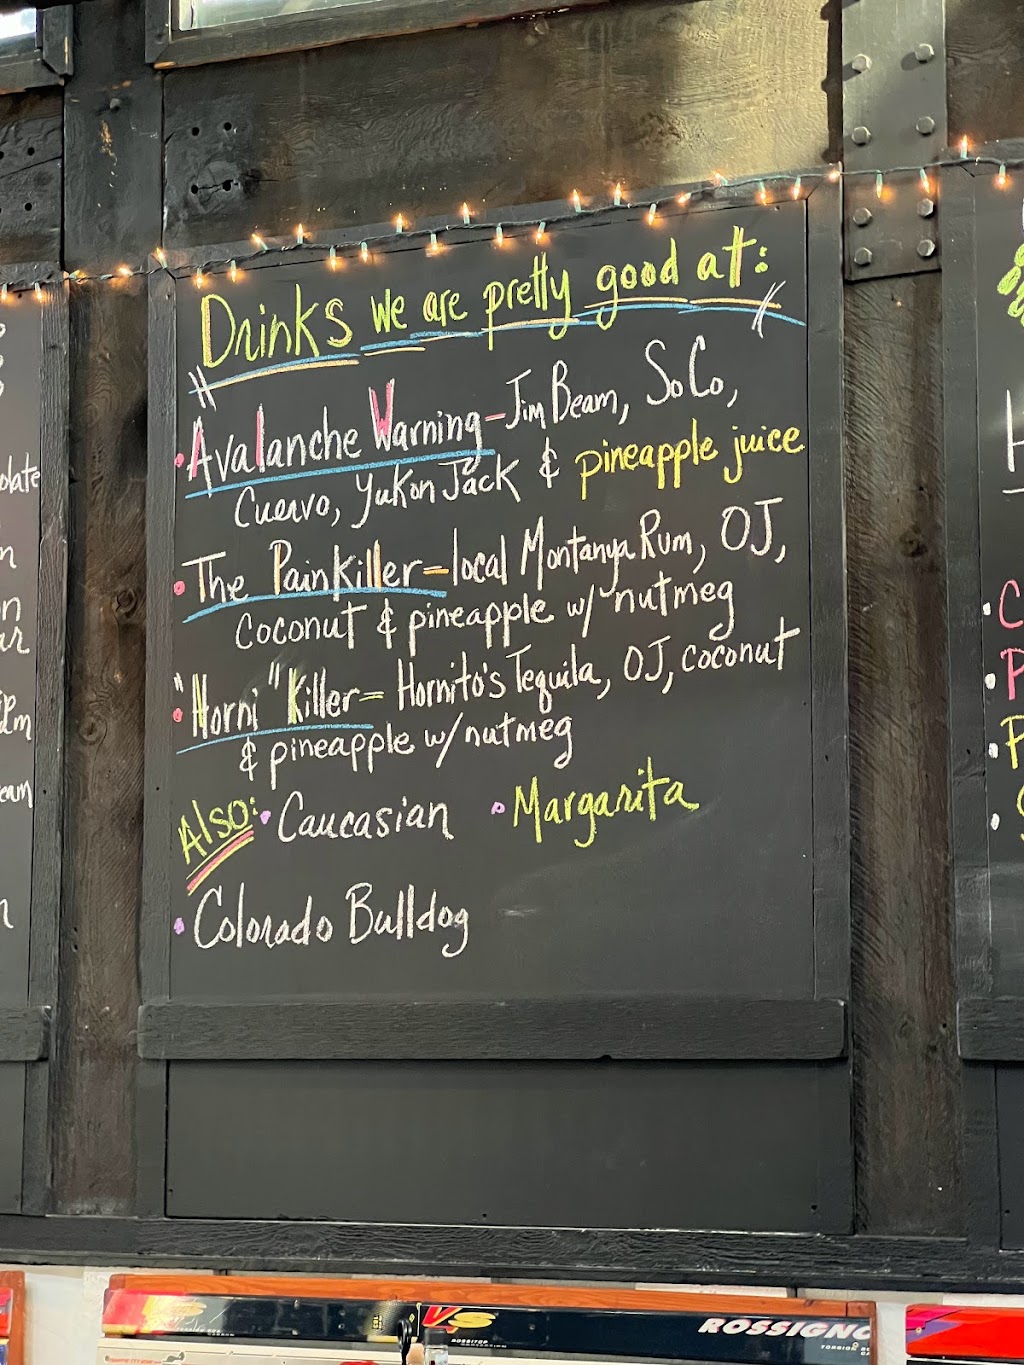 Drinks we are pretty good at:
• Avalanche Warning - Jim Beam, SoCo,
Cuervo, Yukon Jack & pineapple juice
• The Painkiller = local Montanya Rum, OJ,
Coconut & pineapple w/ nutmeg
• "Horni" Killer = Hornito's Tequila, OJ, coconut
& pineapple w/ nutmeg
Also: • Caucasian • Margarita
• Colorado Bulldog
VS
ROSSIGNO